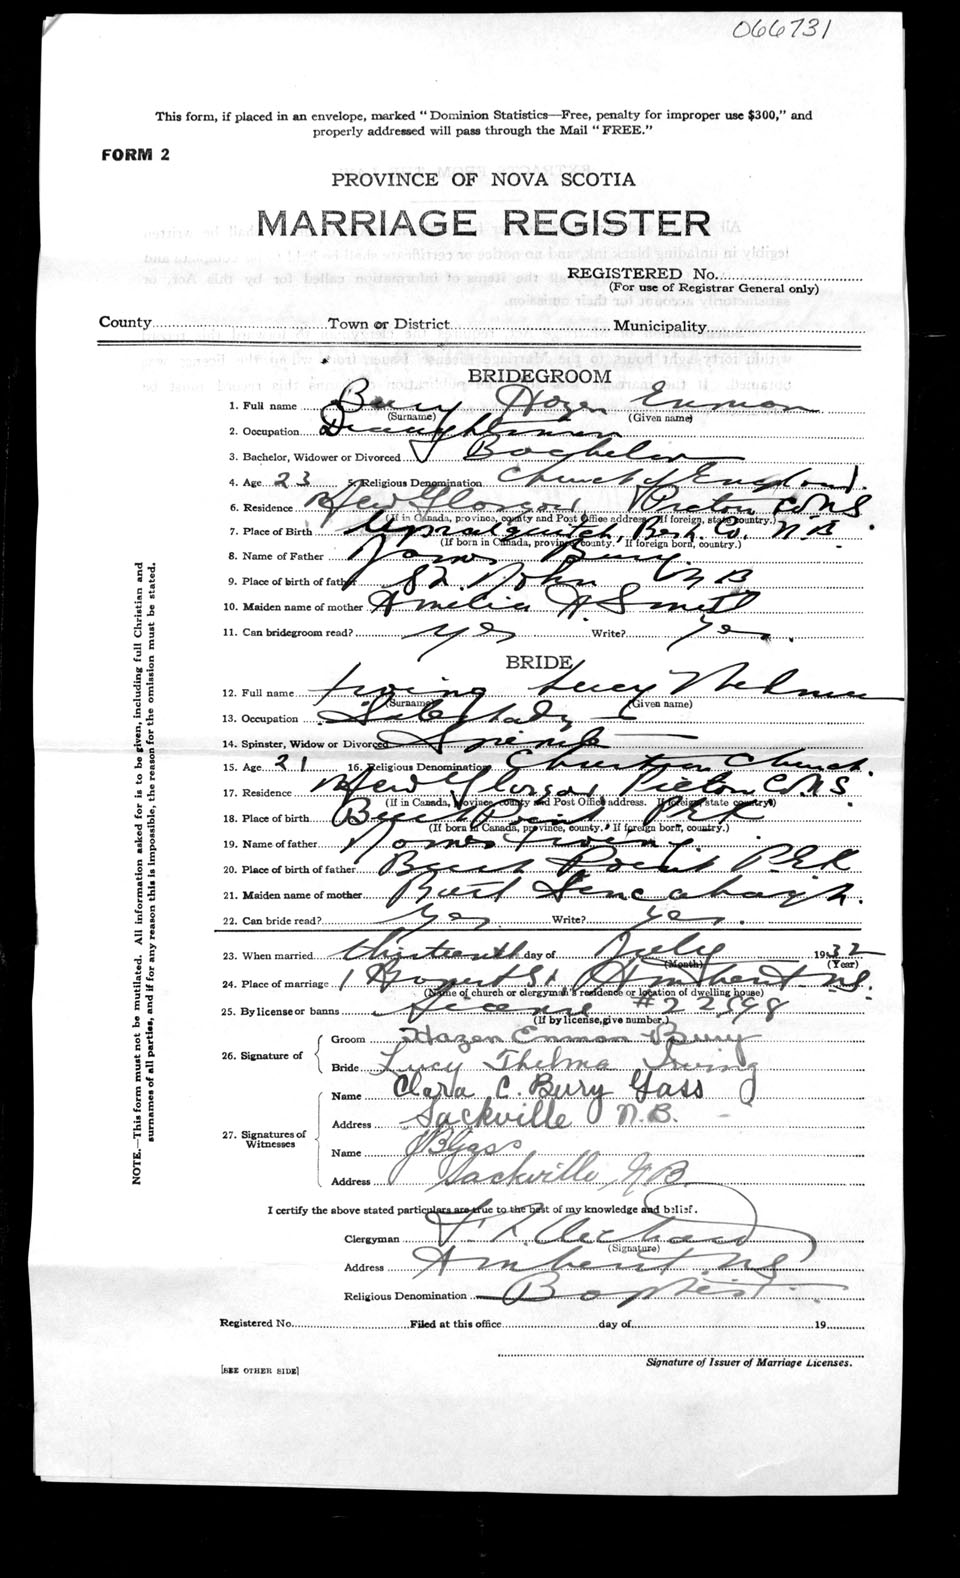 066731
This form, if placed in an envelope, marked "Dominion Statistics—Free, penalty for improper use $300," and
properly addressed will pass through the Mail "FREE."
FORM 2
PROVINCE OF NOVA SCOTIA
MARRIAGE REGISTER
REGISTERED No.
(For use of Registrar General only)
County Town or District Municipality
BRIDEGROOM
1. Full name Bury Hazen Enmon
(Surname) (Given name)
2. Occupation Draughtsman
3. Bachelor, Widower or Divorced Bachelor
4. Age 23 5. Religious Denomination Church of England
6. Residence New Glasgow Pictou Co NS
(If in Canada, province, county and Post Office address. If foreign, state country.)
7. Place of Birth Co. N.B
(If born in Canada, province, county. If foreign born, country.)
8. Name of Father James Bury
9. Place of birth of father St John N B
10. Maiden name of mother Amelia A Smith
11. Can bridegroom read? Yes Write? Yes.
BRIDE
12. Full name Irving Lucy Thelma
(Surname) (Given name)
13. Occupation Saleslady
14. Spinster, Widow or Divorced Spinster
15. Age 21 16. Religious Denomination Christian Church.
17. Residence New Glasgow Pictou Co NS
(If in Canada, province, county and Post Office address. If foreign, state country)
18. Place of birth Point P.E.I
(If born in Canada, province, county. If foreign born, country.)
19. Name of father Irving
20. Place of birth of father Point P.E.I
21. Maiden name of mother
22. Can bride read? Yes Write? Yes.
23. When married thirteenth day of July 1932
(Month) (Year)
24. Place of marriage St Amherst N.S.
(Name of church or clergyman's residence or location of dwelling house)
25. By license or banns License # 22598
(If by license, give number.)
26. Signature of
Groom Hazen Enmon Bury
Bride Lucy Thelma Irving
27. Signatures of Witnesses
Name Clara C. Bury Gass
Address Sackville N.B.
Name J B Gass
Address Sackville, N.B.
I certify the above stated particulars are true to the best of my knowledge and belief.
Clergyman
(Signature)
Address Amherst N.S.
Religious Denomination Baptist
Registered No. Filed at this office day of 19
Signature of Issuer of Marriage Licenses.
[SEE OTHER SIDE]
NOTE.—This form must not be mutilated. All information asked for is to be given, including full Christian and
surnames of all parties, and if for any reason this is impossible, the reason for the omission must be stated.